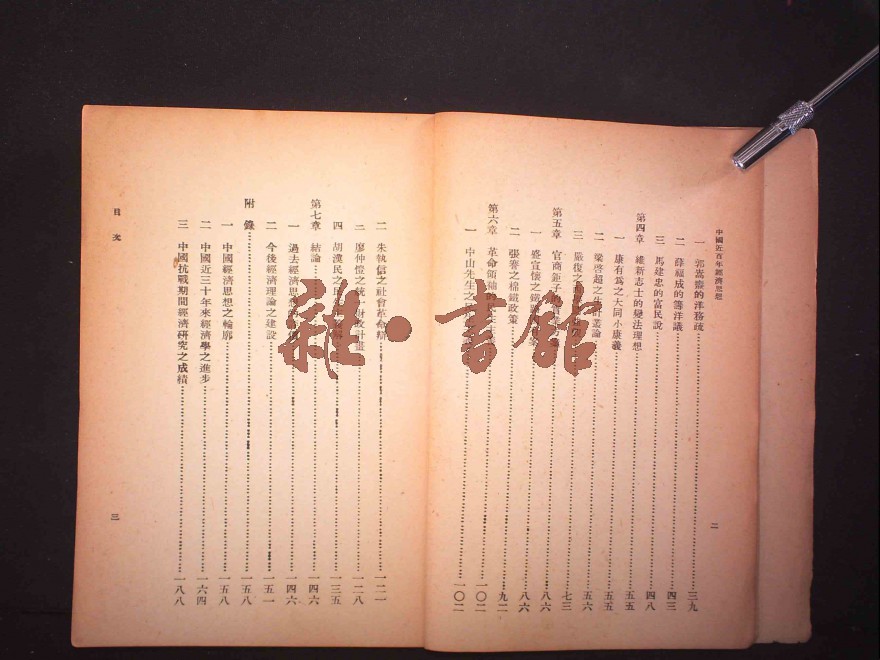 中國近百年經濟思想
一 郭嵩燾的洋務疏 三九
二 薛福成的籌洋議 四三
三 馬建忠的富民說 四八
第四章 維新志士的變法理想 五五
一 康有爲之大同小康義 五五
二 梁啓超之生計叢論 五六
三 嚴復之 七三
第五章 官商鉅子的 八六
一 盛宣懷之鐵 八六
二 張謇之棉鐵政策 九二
第六章 革命領袖的 一〇二
一 中山先生之 一〇二
二
二 朱執信之社會革命 一二一
三 廖仲愷之統 財政計畫 一二八
四 胡漢民之民 一三五
第七章 結論 一四六
一 過去經濟思想的 一四六
二 今後經濟理論之建設 一五一
附錄 一五八
一 中國經濟思想之輪廓 一五八
二 中國近三十年來經濟學之進步 一六四
三 中國抗戰期間經濟研究之成績 一八八
目次
三
雜·書館